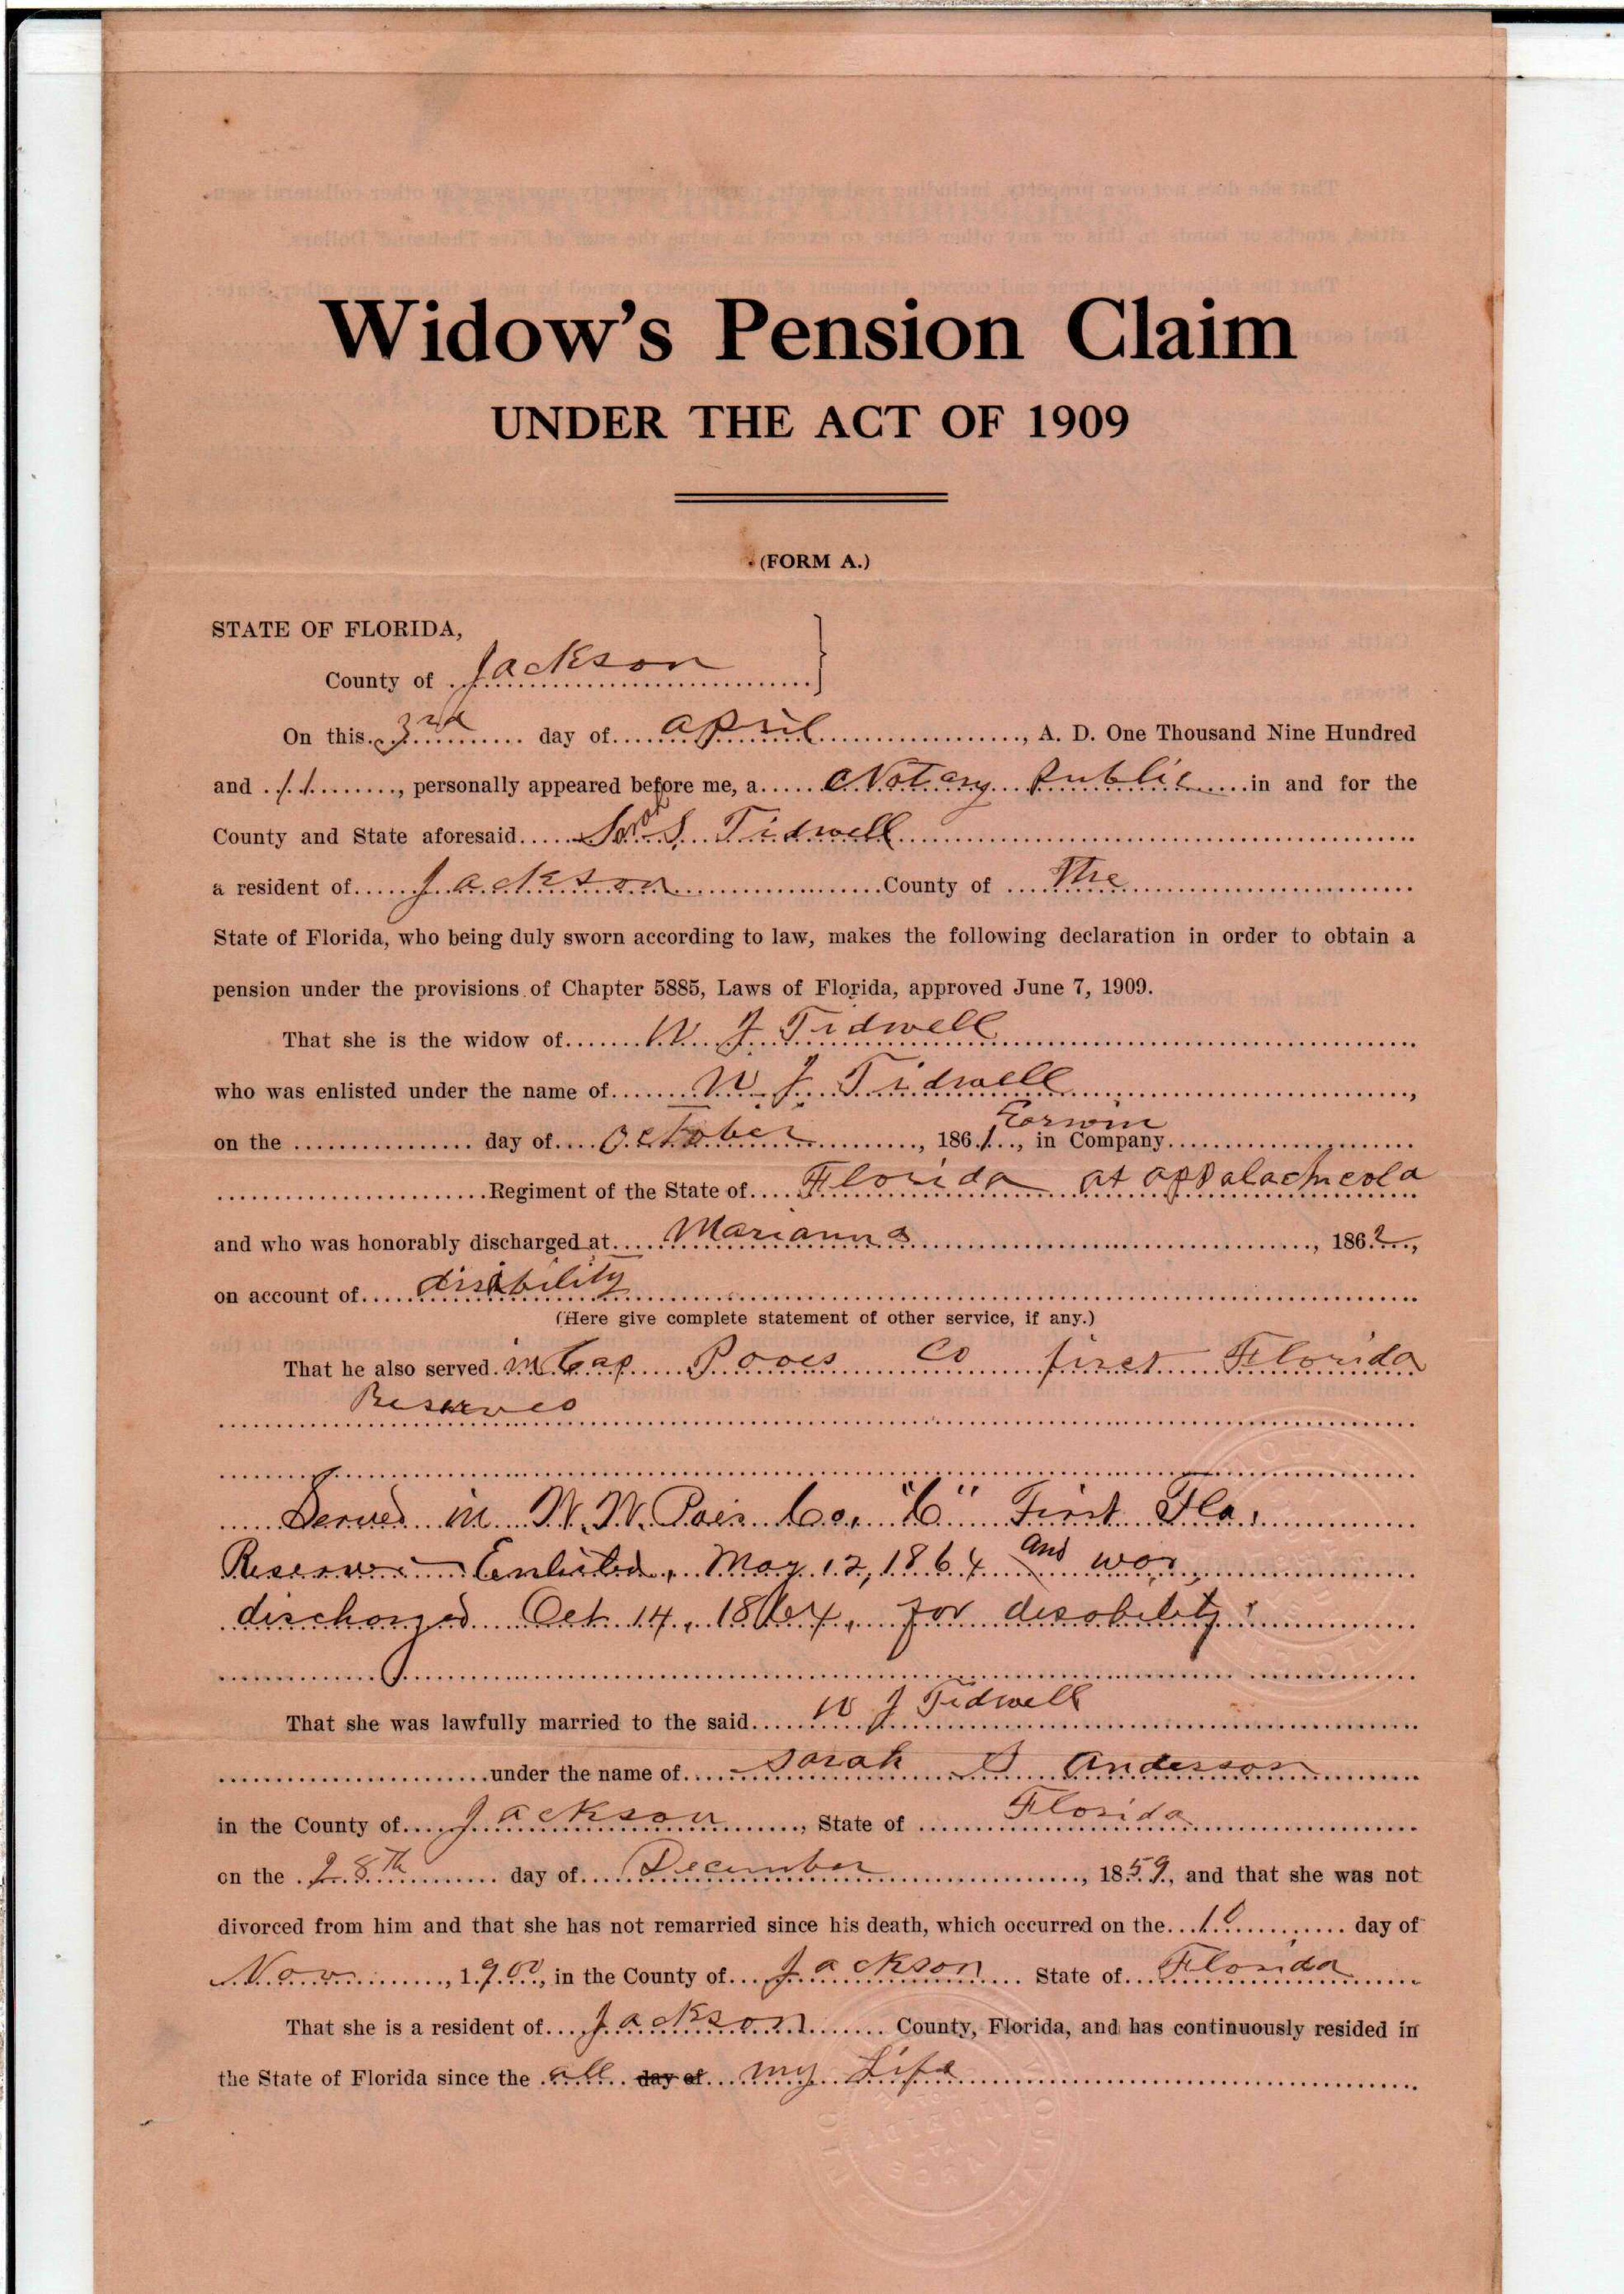 Widow's Pension Claim
UNDER THE ACT OF 1909
(FORM A.)
STATE OF FLORIDA,
County of Jackson
On this 3rd day of April, A. D. One Thousand Nine Hundred
and 11, personally appeared before me, a Notary Public in and for the
County and State aforesaid S. Tidwell
a resident of Jackson County of The
State of Florida, who being duly sworn according to law, makes the following declaration in order to obtain a
pension under the provisions of Chapter 5885, Laws of Florida, approved June 7, 1909.
That she is the widow of W J Tidwell
who was enlisted under the name of W J Tidwell,
on the day of October, 1861, in Company
Regiment of the State of Florida at
and who was honorably discharged at Marianna, 1862,
on account of disibility
(Here give complete statement of other service, if any.)
That he also served in Cap Co first Florida
Reserves
Served in W. W. Co. "C" First Fla.
Reserve Enlisted, May 12, 1864 and was
discharged Oct 14, 1864, for disability.
That she was lawfully married to the said W J Tidwell
under the name of Sarah S Anderson
in the County of Jackson, State of Florida
on the 28th day of December, 1859, and that she was not
divorced from him and that she has not remarried since his death, which occurred on the day of
Nov, 1900, in the County of Jackson State of Florida
That she is a resident of Jackson County, Florida, and has continuously resided in
the State of Florida since the all day of my Life